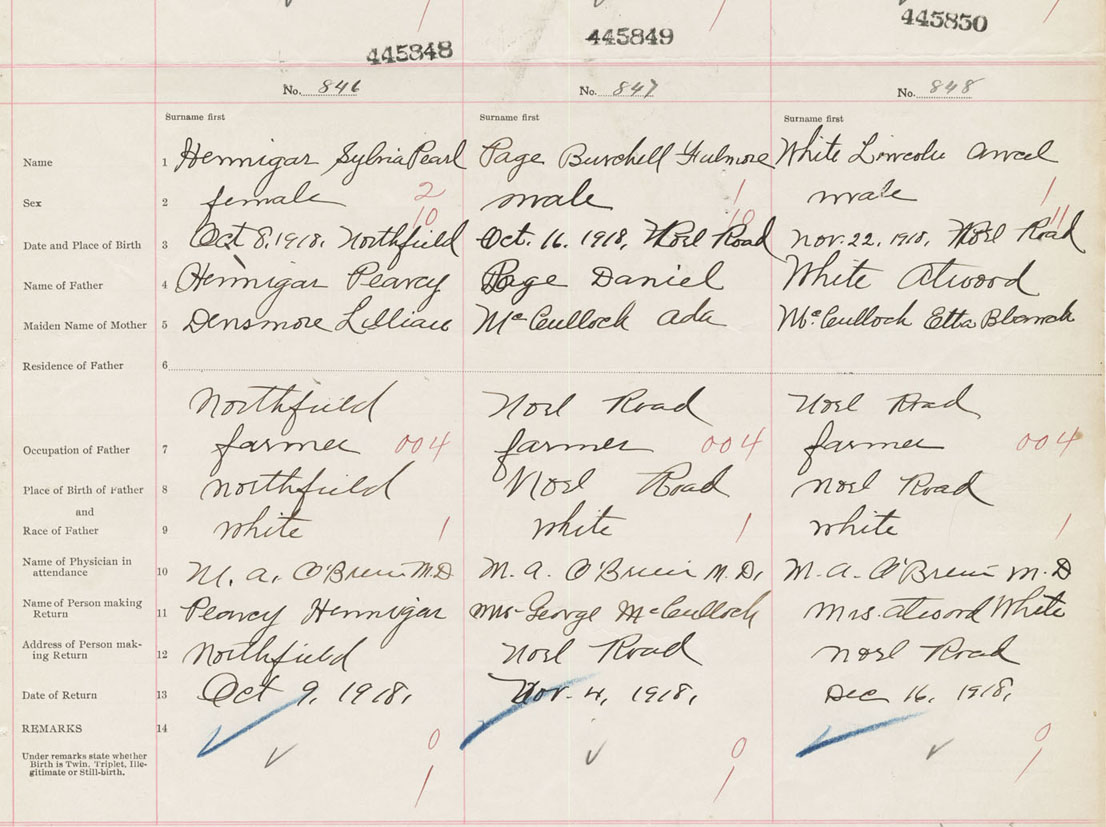 445848 445849 445850
No. 846 No. 847 No. 848
Surname first Surname first Surname first
Name 1 Hennigar Sylvia Pearl Page Burchell Fulmore White Lincoln
Sex 2 female 2 male 1 male 1
10 10 11
Date and Place of Birth 3 Oct 8, 1918, Northfield Oct. 16. 1918, Noel Road Nov. 22, 1918, Noel Road
Name of Father 4 Hennigar Pearcy Page Daniel White Atwood
Maiden Name of Mother 5 Densmore Lillian McCulloch Ada McCulloch Etta Blanch
Residence of Father 6
Northfield Noel Road Noel Road
Occupation of Father 7 farmer 004 farmer 004 farmer 004
Place of Birth of Father 8 Northfield Noel Road Noel Road
and
Race of Father 9 White 1 White 1 White 1
Name of Physician in
attendance 10 M. A. O'Brien M.D M. A. O'Brien M.D. M. A. O'Brien M.D
Name of Person making
Return 11 Pearcy Hennigar Mrs George McCulloch Mrs. Atwood White
Address of Person mak-
ing Return 12 Northfield Noel Road Noel Road
Date of Return 13 Oct 9, 1918, Nov. 4, 1918, Dec 16, 1918,
REMARKS 14
0 0 0
Under remarks state whether
Birth is Twin, Triplet, Ille-
gitimate or Still-birth.
1 1 1